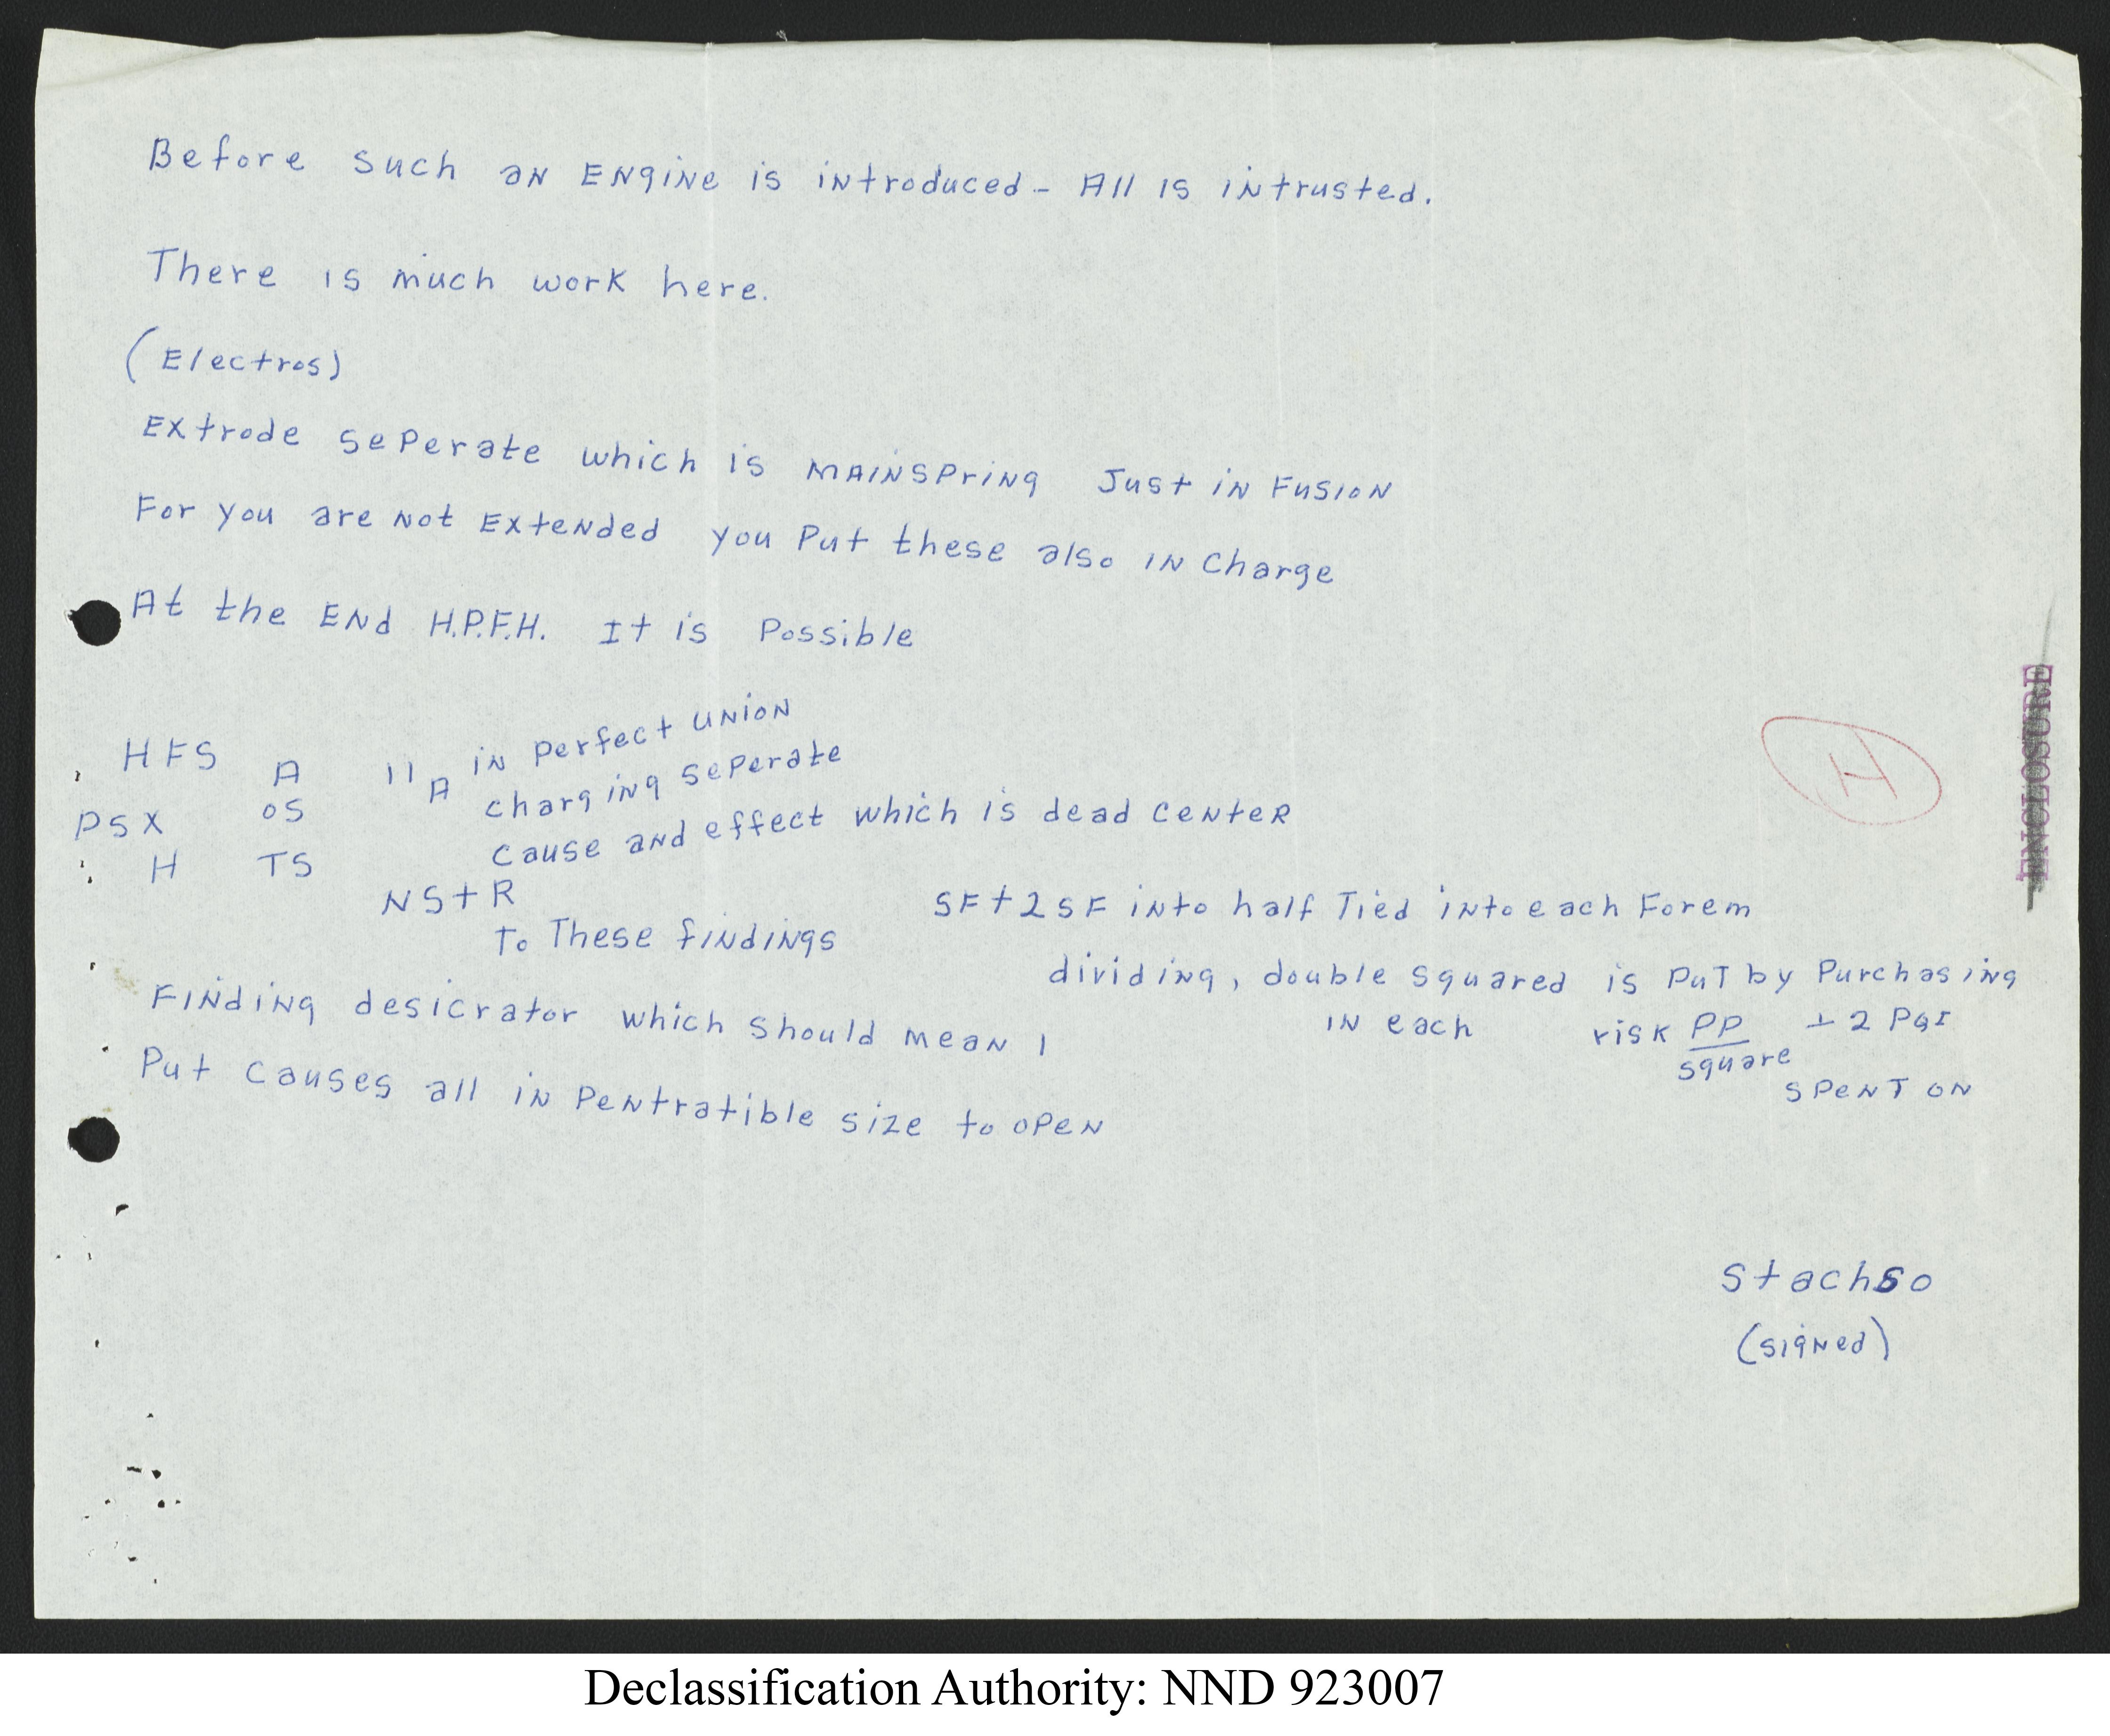 Before such an Engine is introduced - All is intrusted.
There is much work here.
(Electros)
Extrode seperate which is mainspring Just in Fusion
For you are not Extended you Put these also in Charge
At the End H.P.F.H. It is Possible
HFS A 11A in Perfect union
charging seperate
PSX OS
cause and effect which is dead center
H TS
NS+R
To These findings
SF+2SF into half Tied into each Forem
dividing, double squared is Put by Purchasing
in each risk PP ⊥2 PGI
square
Spent on
Finding desicrator which should mean 1
Put causes all in Pentratible size to open
H
ENCLOSURE
Stachso
(signed)
Declassification Authority: NND 923007